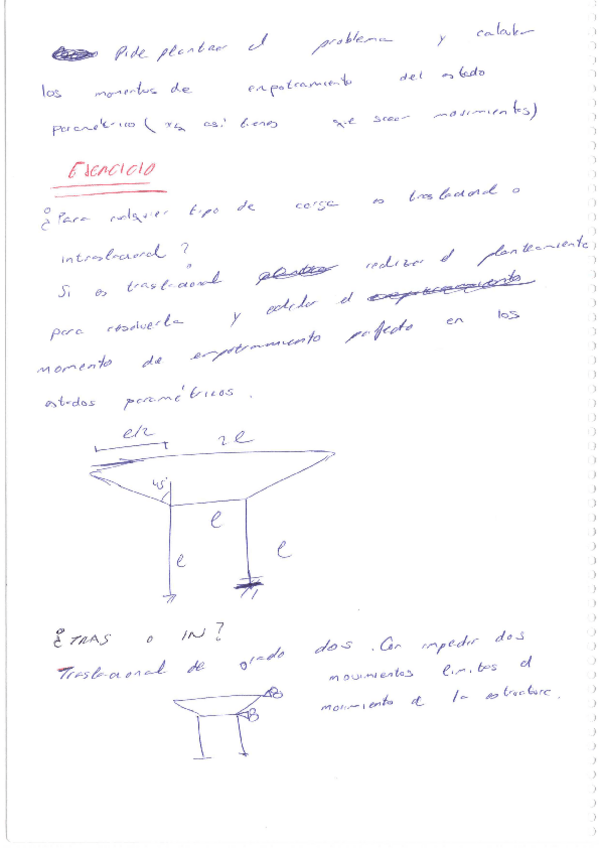 Pide plantear el problema y calcular
los momentos de empotramiento del estado
paramétrico (xq así tienes que sacar movimientos)
EJERCICIO
¿Para cualquier tipo de carga es traslacional o
intraslacional?
Si es traslacional realizar el planteamiento
para resolverla y calcular el
momento de empotramiento perfecto en los
estados paramétricos.
l/2
2l
45º
l
l
l
¿TRAS o IN?
Traslacional de grado dos. Con impedir dos
movimientos limitas el
movimiento de la estructura.